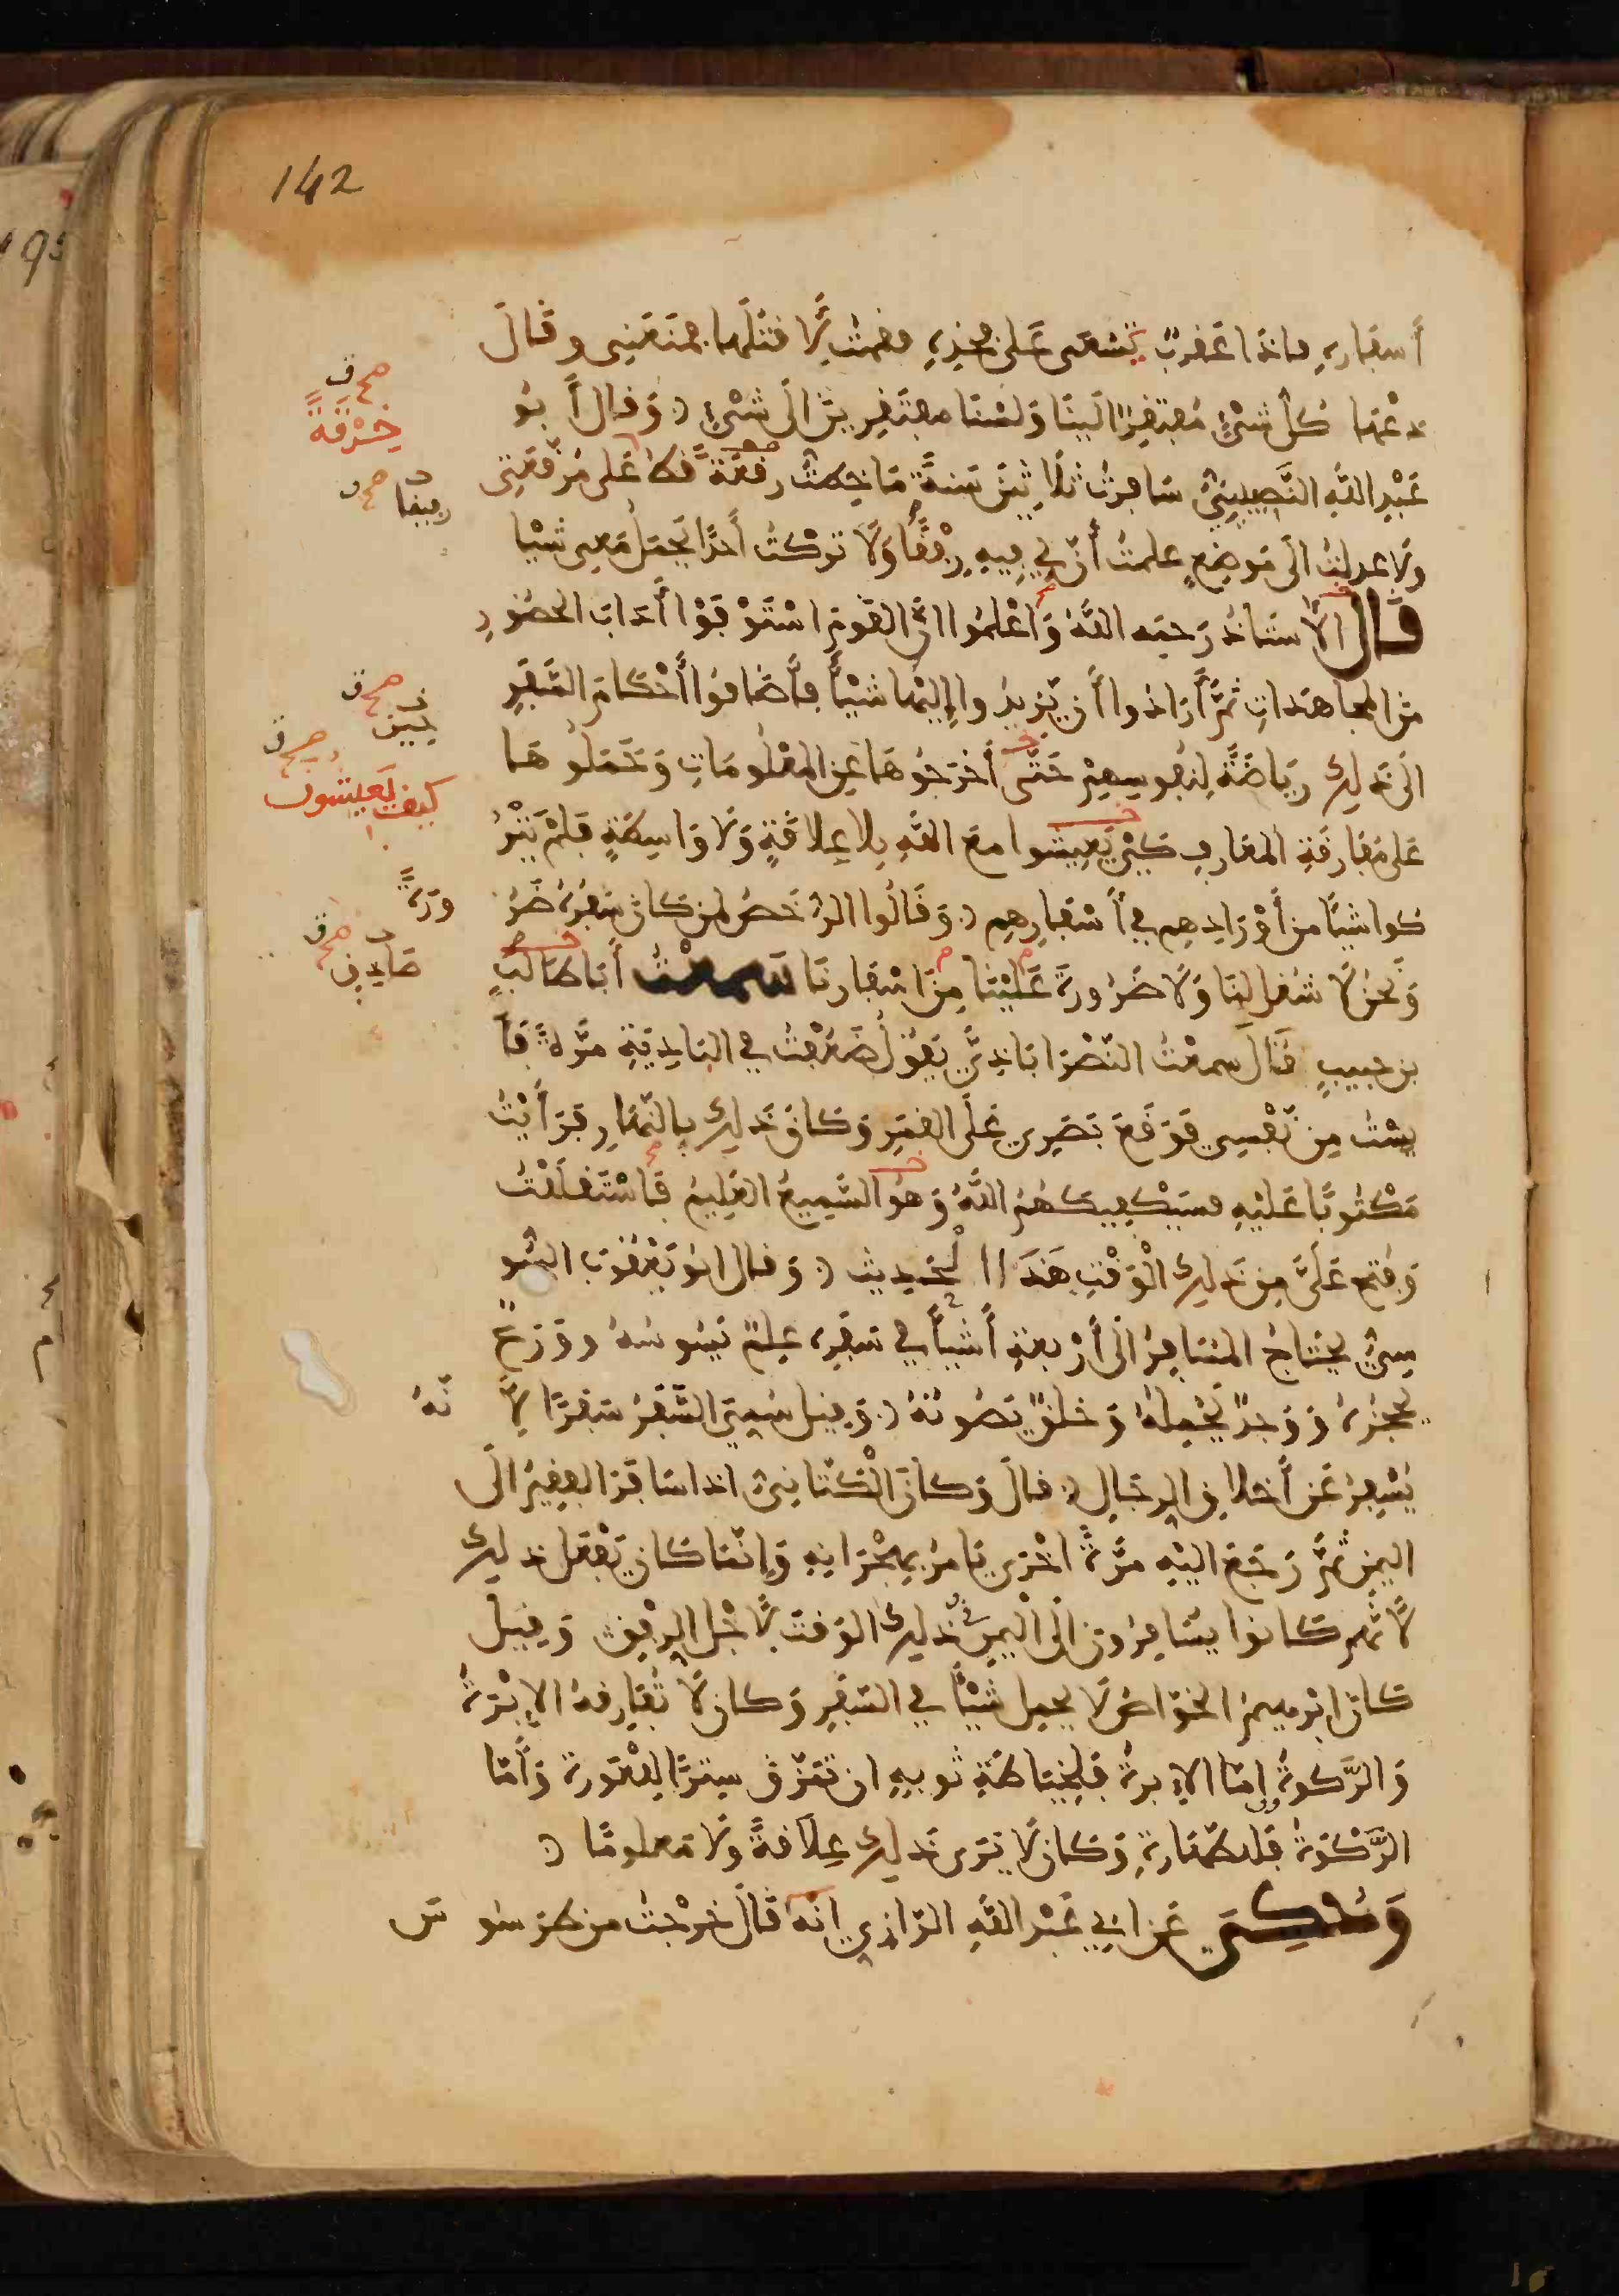 142
أسفاره فاذا عَقربٌ تَسْعَى عَلى فخذه فقمتُ لأقتلَها فمنَعَنِى وقَالَ
دعْها كلُّ شىْءٍ مُفتَقِرٌ الَينا ولسْنَا مفتَقِرِينَ الَى شىْءٍ وَقال أبُو
عَبْدِ اللهِ النَّصِيبِينيُّ سَافرتُ ثلاثِينَ سَنةً مَا خِطتُ رقعَةً قطُّ عَلى مُرَقَّعَتِى
ولا عدلتُ الَى مَوضِعٍ علمتُ أنّ لِي فِيهِ رِفْقًا وَلَا تركتُ أحدًا يَحمل مَعِى شيْا
قَال الأستَاذُ رَحمَه اللهُ وَاعْلمُوا انّ القَومَ اسْتَوْفَوْا أدَابَ الحضُورِ
مِن المجاهَدَاتِ ثمَّ أرَادُوا أن يَزيدُوا إليْها شيْأً فأضَافُوا أحْكامَ السَّفَرِ
الَى ذَلِك رِيَاضَةً لِنفُوسِهِمْ حَتَّى أخرَجُوهَا عَنِ المعْلُومَاتِ وَحَمَلُوهَا
عَلى مُفَارقَةِ المعَارِفِ كَىْ يَعِيشُوا معَ اللهِ بِلا عِلاقَةٍ وَلَا وَاسِطَةٍ فَلمْ يَتْرُ
كوا شيْأً من أوْرَادِهِم فى أسْفَارِهِم وَقَالُوا الرُّخَصُ لمن كَان سَفَرُهُ ضَرُ
وَنَحنُ لا شغل لنَا وَلَا ضَرُورَةَ عَلَيْنَا مِنَ اسْفارنَا سَمعْتُ أبَا طَالبٍ
بن حبيبٍ قَالَ سمعْتُ النَّصْرَابَاذِيَّ يَقُولُ ضَعُفْتُ فى البَادِيَةِ مرَّةً فَأ
يِسْتُ مِن نَفْسِى فَوَقَعَ بَصَرِى عَلَى القَمَرِ وَكَانَ ذَلِك بِالنَّهَارِ فَرَأيْتُ
مَكْتُوبًا عَلَيْهِ فسَيَكْفِيكَهُمُ اللهُ وَهُو السَّمِيعُ العَلِيمُ فَاسْتَقلَلْتُ
وَفُتِحَ عَلَىَّ مِن ذَلِك الْوَقْتِ هَذَا الْحَدِيث وَقال ابُو يَعْقُوبَ السُّو
سِىُّ يَحْتَاجُ المسَافِرُ الَى أرْبعةِ أشيَأ فى سَفَرِه عِلمٌ يَسُوسُهُ ووَرَعٌ
يَحجُزُهُ وَوَجدٌ يَحْمِلهُ وَخلقٌ يَصُونُهُ وَقِيل سُمِيَ السَّفَرُ سَفَرًا لأ نّهُ
يُسْفِرُ عَن أخلاقِ الرجَالِ قالَ وَكانَ الْكَتَّانِىُّ اذا سَافَرَ الفَقِيرُ الَى
اليمن ثمَّ رَجَعَ اليْهِ مَرَّةً اخْرَى يَامرُ بِهِجْرَانِهِ وَإنّمَا كَان يَفْعَل ذلِك
لأنّهم كَانوا يُسَافِرُون الَى الْيَمَنِ ذَلِك الوَقتَ لأجْل الرِفْقِ وَقِيلَ
كَانَ ابْرهِيمُ الخوَّاصُ لَا يحمِل شيْأً فى السَفَرِ وَكان لَا تُفَارِقهُ الإبْرَةُ
وَالرَّكوةُ امّا الإبرةُ فَلِخِيَاطَةِ ثوبِهِ ان تَمَزّق سِترًا لِلعَوْرة وَأمَّا
الرَّكْوَةُ فَلِلطّهَارةِ وَكَان لَا يَرَى ذَلِك عِلَاقةً ولَا مَعلُومًا
وَحُكِىَ عَن ابِى عَبْدِ اللهِ الرّازِى انّهُ قَالَ خرجْتُ من طرسُو سَ
صح ق
خِرْقَةً
رفيقا صح
صح ق
صح ق
كيف يَعِيشُون
ورَةً
صح ق